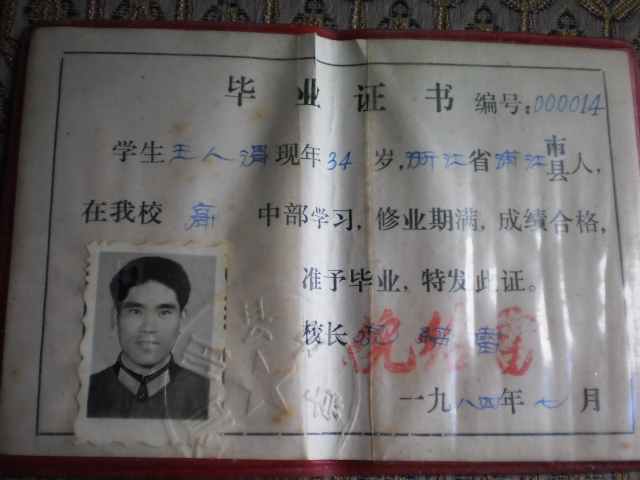 毕业证书 编号:000014
学生王人清现年34岁,浙江省浦江市县人,
在我校高中部学习,修业期满,成绩合格,
准予毕业,特发此证。
校长
一九八四年七月